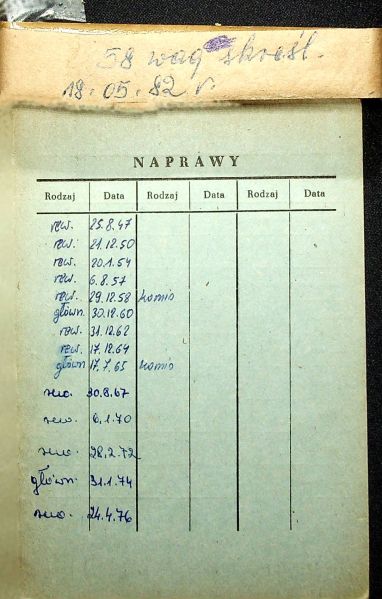 58 wag skreśl.
18.05.82 r.
NAPRAWY
Rodzaj Data Rodzaj Data Rodzaj Data
rew. 25.8.47
rew. 21.12.50
rew. 20.1.54
rew. 6.8.57
rew. 29.12.58
główn. 30.12.60
rew. 31.12.62
rew. 17.12.64
główn 17.7.65
rew. 30.8.67
rew. 6.1.70
rew. 28.2.72
główn. 31.1.74
rew. 24.4.76